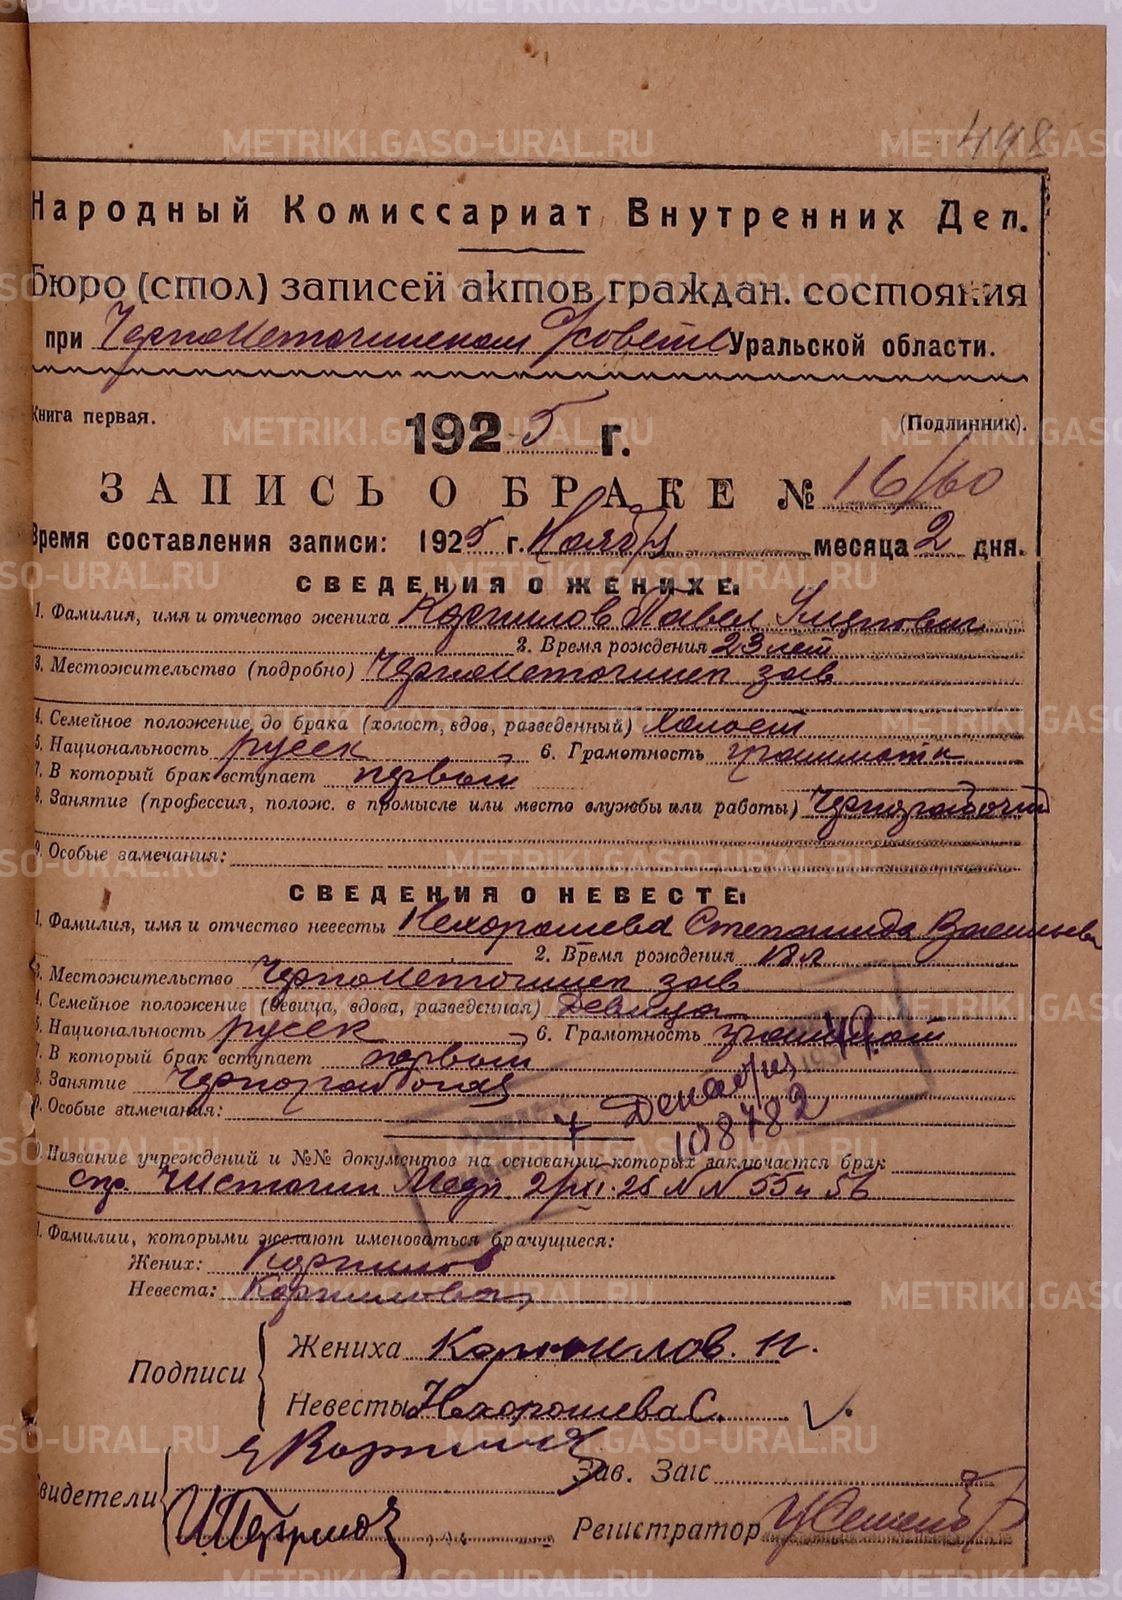 448
Народный Комиссариат Внутренних Дел.
Бюро (стол) записей актов граждан. состояния
при Черноисточинском Уральской области.
Книга первая. (Подлинник).
1925 г.
ЗАПИСЬ О БРАКЕ № 16/60
Время составления записи: 1925 г. Ноября месяца 2 дня.
СВЕДЕНИЯ О ЖЕНИХЕ:
1. Фамилия, имя и отчество жениха Корнилов Павел
2. Время рождения 23 лет
3. Местожительство (подробно) Черноисточинск зав
4. Семейное положение до брака (холост, вдов, разведенный) холост
5. Национальность русск 6. Грамотность
7. В который брак вступает первый
8. Занятие (профессия, полож. в промысле или место службы или работы) Чернорабочий
9. Особые замечания:
СВЕДЕНИЯ О НЕВЕСТЕ:
1. Фамилия, имя и отчество невесты Нехорошева Степанида
2. Время рождения
3. Местожительство Черноисточинск зав
4. Семейное положение (девица, вдова, разведенная) Девица
5. Национальность русск 6. Грамотность
7. В который брак вступает первый
8. Занятие Чернорабочая
9. Особые замечания:
108782
10. Название учреждений и №№ документов на основании которых заключается брак
спр. 2/XI-25 NN 55 и 56
11. Фамилии, которыми желают именоваться брачущиеся:
Жених: Корнилов
Невеста: Корнилова
Подписи
Жениха Корнилов. П.
Невесты Нехорошева С.
Зав. Загс
Свидетели
Регистратор